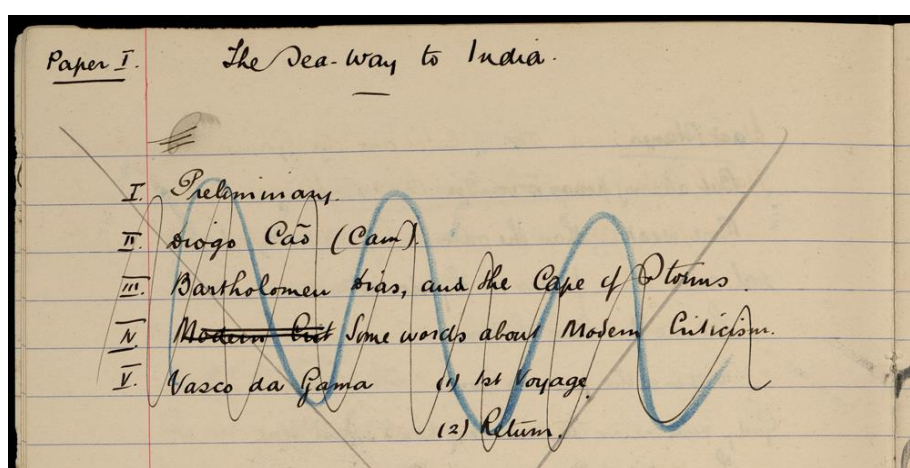 Paper I. The Sea-Way to India.
I. Preliminary.
II. Diogo Cão (Cam).
III. Bartholomeu Dias, and the Cape of Storms.
IV. Modern Crit Some words about Modern Criticism.
V. Vasco da Gama (1) 1st Voyage.
(2) Return.